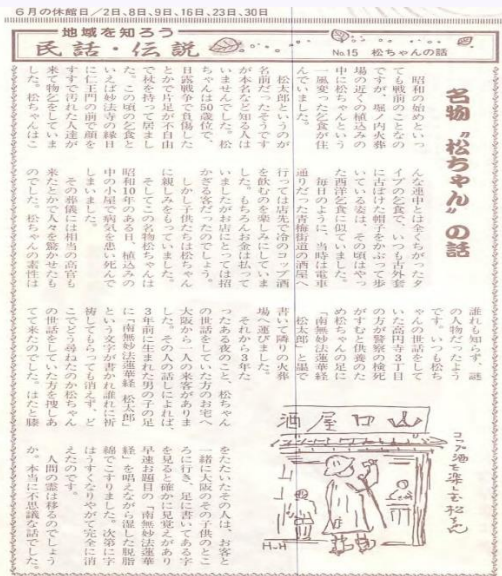 6月の休館日/2日、8日、9日、16日、23日、30日
地域を知ろう
民話・伝説
No.15 松ちゃんの話
名物“松ちゃん”の話
昭和の始めといっ
ても戦前のことなの
ですが、堀ノ内火葬
場の近くの植込みの
中に松ちゃんという
一風変った乞食が住
んでいました。
松太郎というのが
名前だったそうです
が本名など知る人は
いませんでした。松
ちゃんは50歳位で、
日露戦争で負傷した
とかで片足が不自由
で杖を持って居まし
た。この頃の乞食と
いえば妙法寺の縁日
に仁王門の前で顔を
すすで汚れた人達が
来て物乞をしていま
した。松ちゃんはこ
んな連中とは全くちがったタ
イプの乞食で、いつも古外套
に古ぼけた帽子をかぶって歩
いている姿は、その頃はやっ
た西洋乞食に似ていました。
毎日のように、当時は電車
通りだった青梅街道の酒屋へ
行っては店先で冷のコップ酒
を飲むのを楽しみにしていま
した。もちろんお金は払って
いましたがお店にとっては招
かざる客だったのでしょう。
しかし子供たちは松ちゃん
に親しみをもっていました。
そしてこの名物松ちゃんは
昭和10年のある日、植込みの
中の小屋で病気を患い死んで
しまいました。
その葬儀には相当の高官も
来たとかで人々を驚かせたも
のでした。松ちゃんの素性は
誰れも知らず、謎
の人物だったよう
です。いつも松ち
ゃんの世話をして
いた高円寺3丁目
の方が警察の検死
がすむと供養のた
め松ちゃんの足に
「南無妙法蓮華経
松太郎」と墨で
書いて隣りの火葬
場へ運びました。
それから3年た
ったある夜のこと、松ちゃん
の世話をしていた方のお宅へ
大阪から一人の来客がありま
した。その人の話しによれば、
3年前に生まれた男の子の足
に「南無妙法蓮華経 松太郎」
という文字が書かれ誰れに祈
祷してもらっても消えず、ど
こでどう尋ねたのか松ちゃん
の世話をしていた方を捜しあ
てて来たのでした。はたと膝
をたたいたその人は、お客と
一緒に大阪のその子供のとこ
ろに行き、足に書いてある字
を見ると確かに見覚えがあり
早速お題目の「南無妙法蓮華
経」を唱えながら湿した脱脂
綿でこすりました。次第に字
はうすくなりやがて完全に消
えたのです。
人間の霊は移るのでしょう
か。本当に不思議な話でした。
酒屋口山
コップ酒を楽しむ松ちゃん
H.H